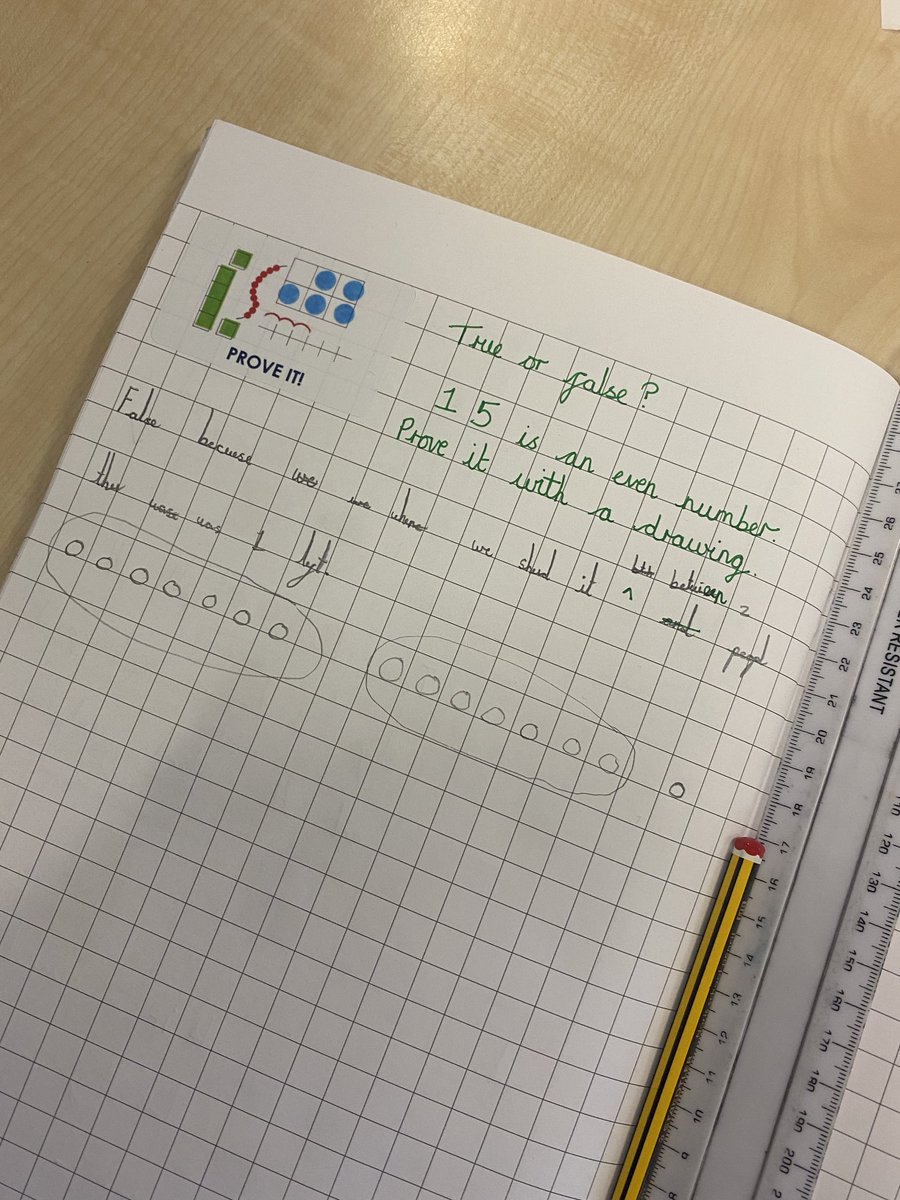 PROVE IT!
True or false?
15 is an even number.
Prove it with a drawing.
False becuese whene we shed it between 2 peopl
ther was 1 lyt.
RESISTANT
27
26
25
24
23
22
21
20
19
18
17
16
15
14
13
12
11
10
9
8
110
120
130
140
150
160
170
180
190
200